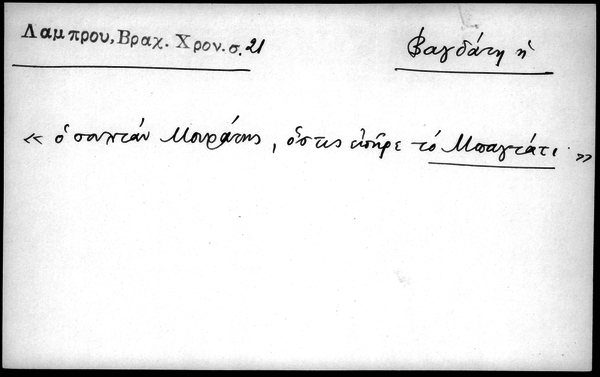 Λαμπρου, Βραχ. Χρον. σ. 21
Βαγδάτη ἡ
« ὁ σουλτάν Μουράτης, ὅστις ἐπῆρε τό Μπαγτάτι. »